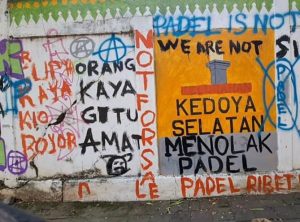 PADEL IS NOT
WE ARE NOT
RUPA
RAYA
KIO
BOYOR
ORANG
KAYA
GITU
AMAT
NOT FOR SALE
KEDOYA
SELATAN
MENOLAK
PADEL
PADEL RIBET
PADEL